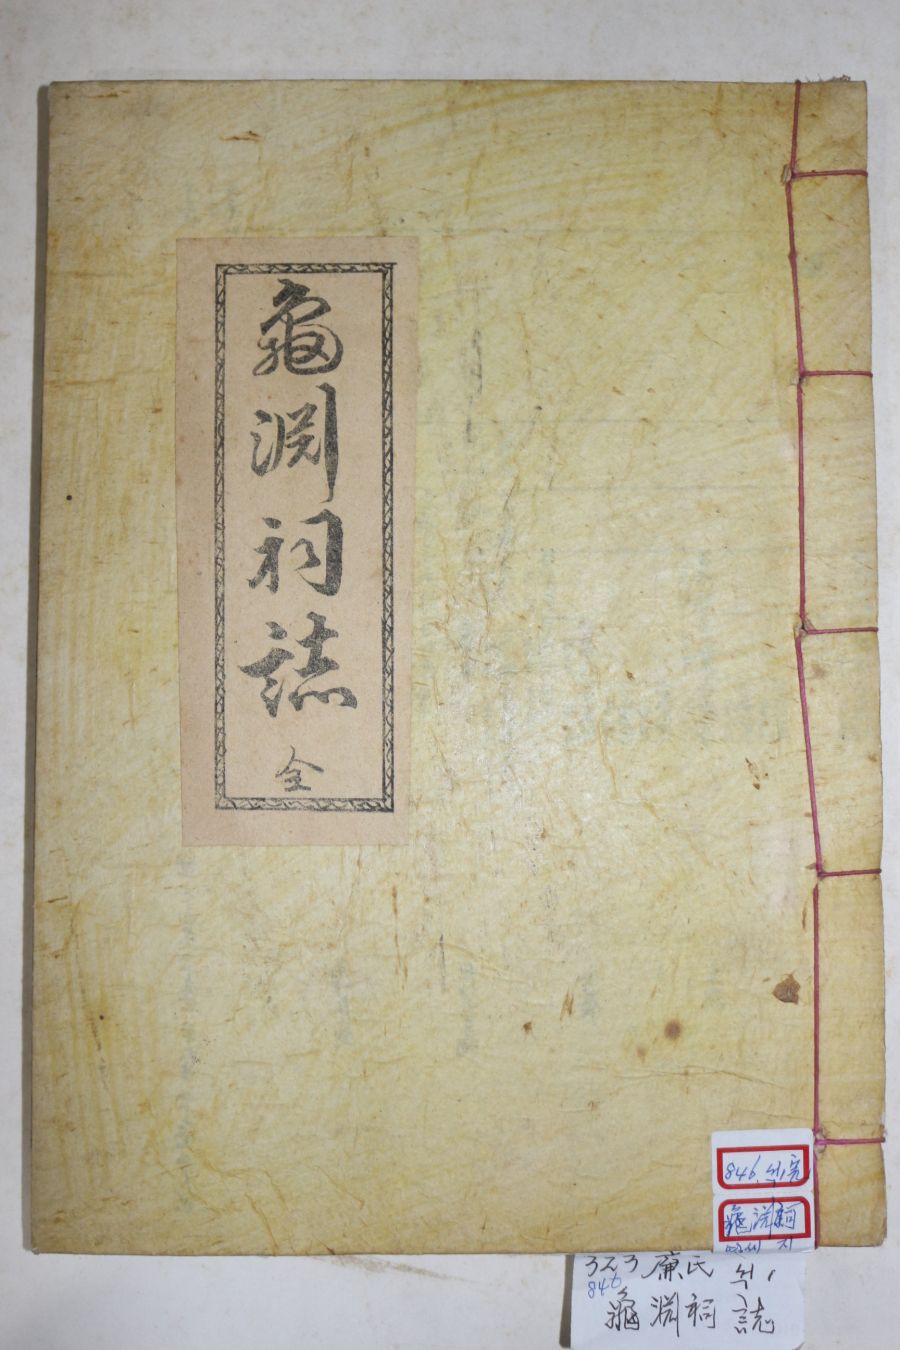 龜淵祠誌
全
846
龜淵祠
323 廉氏
846
龜淵祠誌